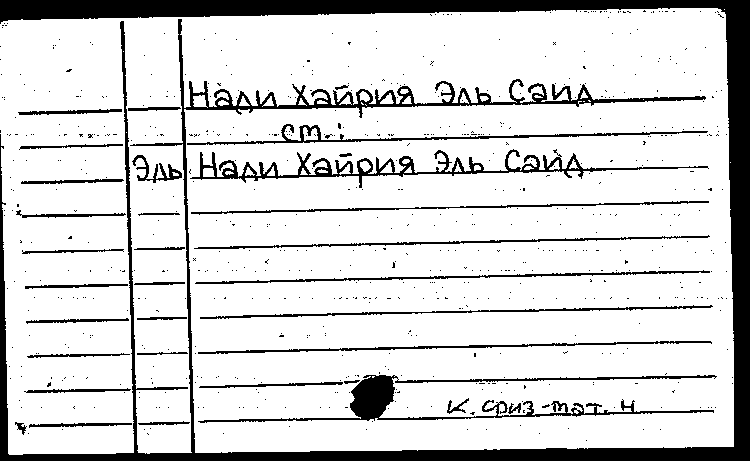 Нади Хайрия Эль Саид
ст.:
Эль Нади Хайрия Эль Саид
К. физ-мат. Н